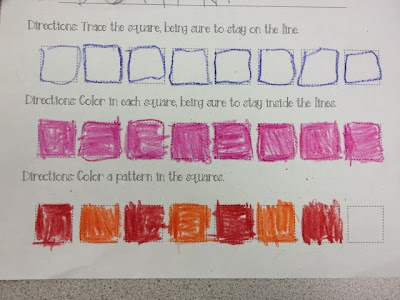 Directions: Trace the square, being sure to stay on the line.
Directions: Color in each square, being sure to stay inside the lines.
Directions: Color a pattern in the squares.